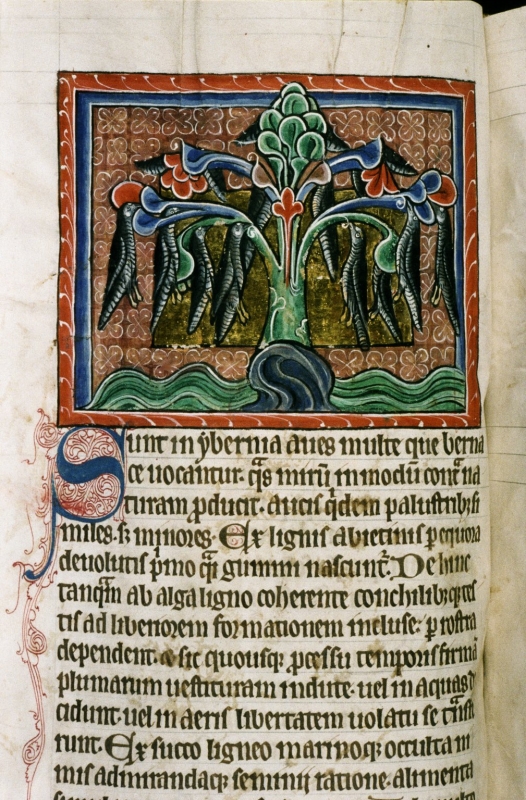 Sunt in ybernia aues multe que berna
ce uocantur. q̄s mirū in modū contͣ na
turam ꝓducit. Aucis qͥdem palustribꝫ si
miles. sꝫ minores. Ex lignis abietinis ꝑ equora
deuolutis pͥmo qͣsi gummi nascuntͬ. De hinc
tanqͣm ab alga ligno coherente conchilibꝫ qꝫ tes
tis ad liberiorem formationem incluse. ꝑ rostra
dependent. ⁊ sic quousqꝫ ꝓcessu temporis firmā
plumarum uestituram indute. uel in aquas de
cidunt. uel in aeris libertatem uolatu se tͣnsfe
runt. Ex succo ligneo marinoqꝫ occulta ni
mis admirandaqꝫ seminij ratione. alimenta